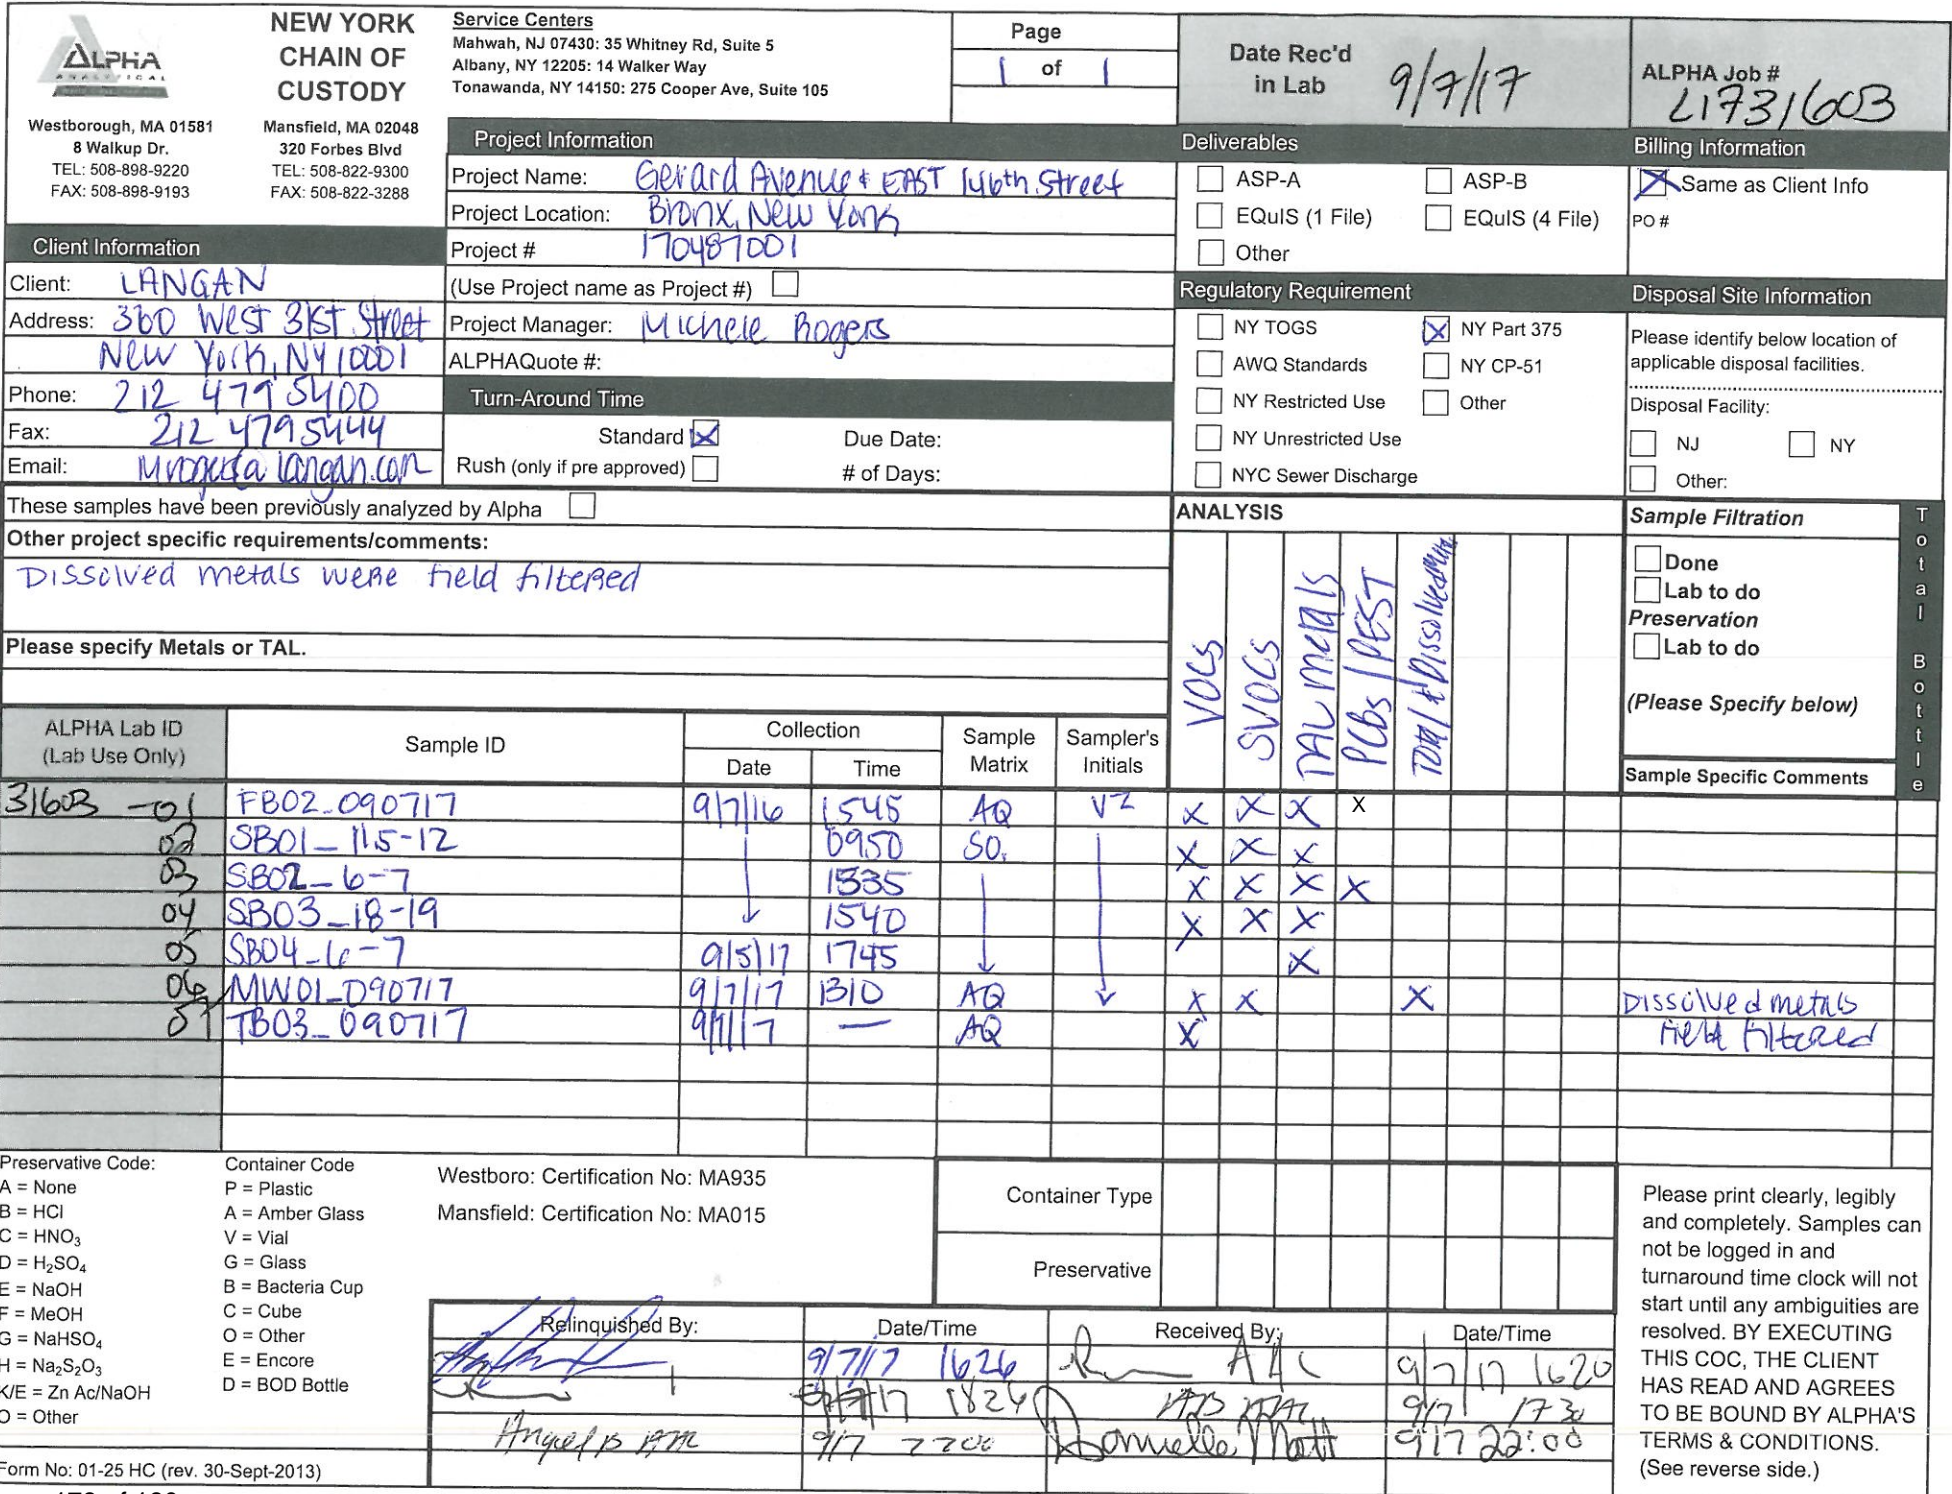 ALPHA
ANALYTICAL
NEW YORK
CHAIN OF
CUSTODY
Westborough, MA 01581
8 Walkup Dr.
TEL: 508-898-9220
FAX: 508-898-9193
Mansfield, MA 02048
320 Forbes Blvd
TEL: 508-822-9300
FAX: 508-822-3288
Service Centers
Mahwah, NJ 07430: 35 Whitney Rd, Suite 5
Albany, NY 12205: 14 Walker Way
Tonawanda, NY 14150: 275 Cooper Ave, Suite 105
Page
1 of 1
Date Rec'd
in Lab 9/7/17
ALPHA Job #
L1731603
Client Information
Client: LANGAN
Address: 360 West 31st Street
New York, NY 10001
Phone: 212 479 5400
Fax: 212 479 5444
Email: Mrogers@langan.com
Project Information
Project Name: Gerard Avenue & EAST 146th Street
Project Location: Bronx, New York
Project # 170487001
(Use Project name as Project #)
Project Manager: Michele Rogers
ALPHAQuote #:
Turn-Around Time
Standard X Due Date:
Rush (only if pre approved) # of Days:
Deliverables
ASP-A ASP-B
EQuIS (1 File) EQuIS (4 File)
Other
Regulatory Requirement
NY TOGS X NY Part 375
AWQ Standards NY CP-51
NY Restricted Use Other
NY Unrestricted Use
NYC Sewer Discharge
Billing Information
X Same as Client Info
PO #
Disposal Site Information
Please identify below location of
applicable disposal facilities.
Disposal Facility:
NJ NY
Other:
These samples have been previously analyzed by Alpha
Other project specific requirements/comments:
Dissolved metals were field filtered
Please specify Metals or TAL.
ANALYSIS
VOCs
SVOCs
TAL metals
PCBs / PEST
Total & Dissolved
Sample Filtration
Done
Lab to do
Preservation
Lab to do
(Please Specify below)
Total Bottle
ALPHA Lab ID
(Lab Use Only)
Sample ID
Collection
Date Time
Sample
Matrix
Sampler's
Initials
Sample Specific Comments
31603 -01 FB02_090717 9/7/16 1545 AQ VZ X X X X
02 SB01_11.5-12 0950 SO. X X X
03 SB02_6-7 1335 X X X X
04 SB03_18-19 1540 X X X
05 SB04_6-7 9/5/17 1745 X
06 MW01_090717 9/7/17 1310 AQ X X X Dissolved metals
07 TB03_090717 9/7/17 — AQ X field filtered
Preservative Code:
A = None
B = HCl
C = HNO3
D = H2SO4
E = NaOH
F = MeOH
G = NaHSO4
H = Na2S2O3
K/E = Zn Ac/NaOH
O = Other
Container Code
P = Plastic
A = Amber Glass
V = Vial
G = Glass
B = Bacteria Cup
C = Cube
O = Other
E = Encore
D = BOD Bottle
Westboro: Certification No: MA935
Mansfield: Certification No: MA015
Container Type
Preservative
Relinquished By: Date/Time Received By: Date/Time
9/7/17 1626 AAL 9/7/17 1620
9/7/17 1826 9/7 1730
9/7 2200 Donielle Mott 9/17 22:00
Please print clearly, legibly
and completely. Samples can
not be logged in and
turnaround time clock will not
start until any ambiguities are
resolved. BY EXECUTING
THIS COC, THE CLIENT
HAS READ AND AGREES
TO BE BOUND BY ALPHA'S
TERMS & CONDITIONS.
(See reverse side.)
Form No: 01-25 HC (rev. 30-Sept-2013)